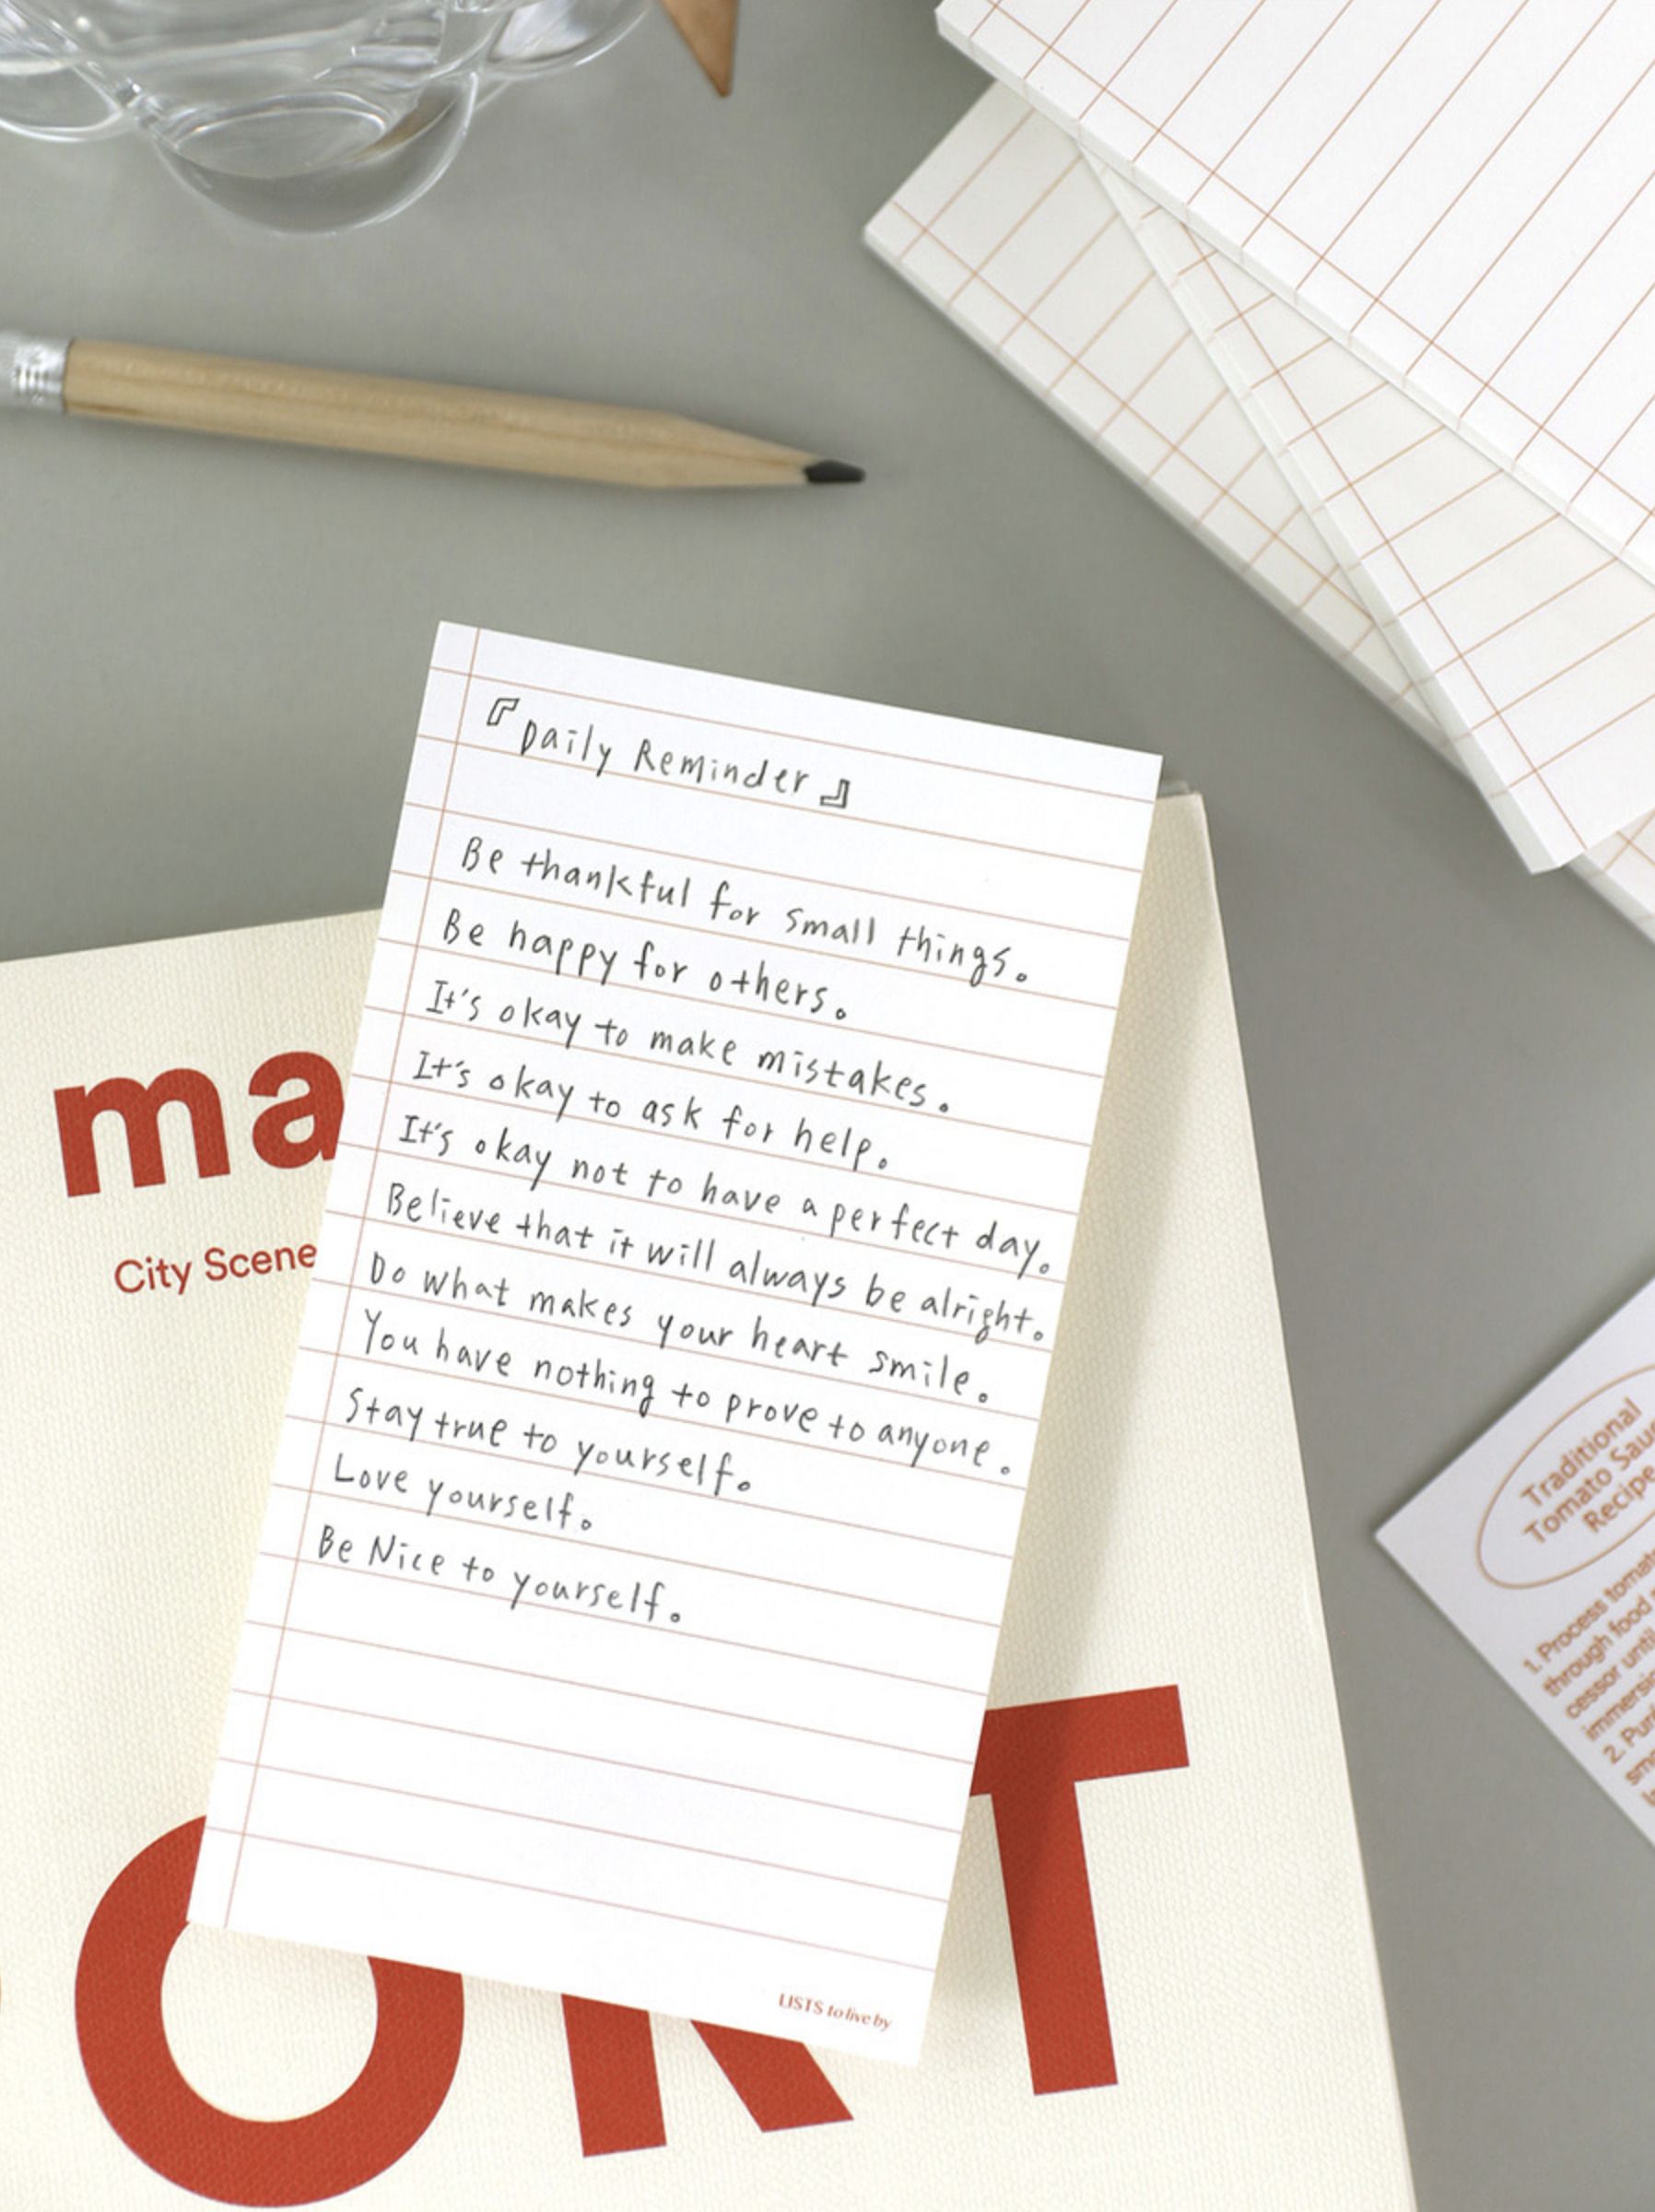 『Daily Reminder』
Be thankful for small things.
Be happy for others.
It's okay to make mistakes.
It's okay to ask for help.
It's okay not to have a perfect day.
Believe that it will always be alright.
Do what makes your heart smile.
You have nothing to prove to anyone.
Stay true to yourself.
Love yourself.
Be Nice to yourself.
LISTS to live by
ma
City Scene
ORT
Traditional
Tomato Sau
Recipe
1. Process tomat
through food
cessor until
immersi
2. Pur